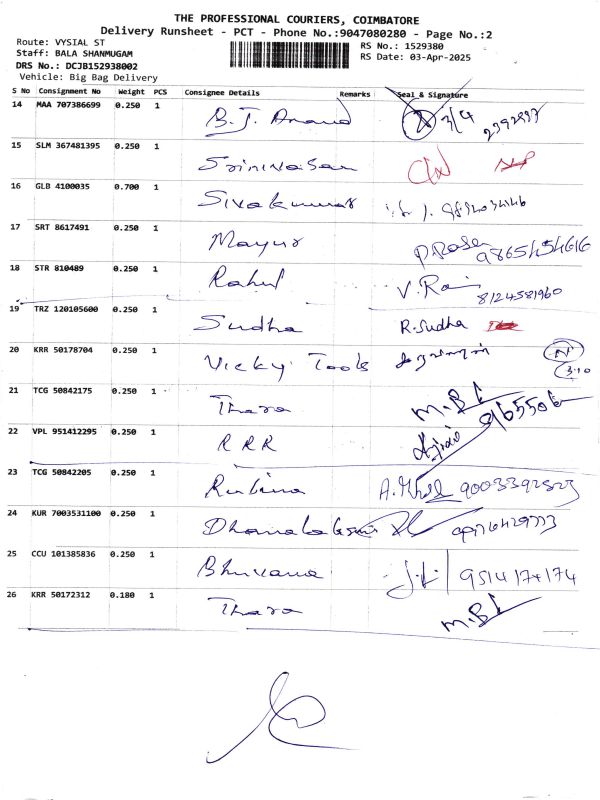 THE PROFESSIONAL COURIERS, COIMBATORE
Delivery Runsheet - PCT - Phone No.:9047080280 - Page No.:2
Route: VYSIAL ST
RS No.: 1529380
Staff: BALA SHANMUGAM
RS Date: 03-Apr-2025
DRS No.: DCJB152938002
Vehicle: Big Bag Delivery
S No Consignment No Weight PCS Consignee Details Remarks Seal & Signature
14 MAA 707386699 0.250 1 B.J. Anand 2 3/4
15 SLM 367481395 0.250 1 Srinivasan
16 GLB 4100035 0.700 1 Sivakumar
17 SRT 8617491 0.250 1 Mayur 9865454616
18 STR 810489 0.250 1 Rahul V. Rai 8124581960
19 TRZ 120105600 0.250 1 Sudha R. Sudha
20 KRR 50178704 0.250 1 Vicky Tools
21 TCG 50842175 0.250 1 Thara M.B
22 VPL 951412295 0.250 1 R R R
23 TCG 50842205 0.250 1 Rubina 9003392523
24 KUR 7003531100 0.250 1 Dhanalakshmi
25 CCU 101385836 0.250 1 Bhuvana
26 KRR 50172312 0.180 1 Thara M.B